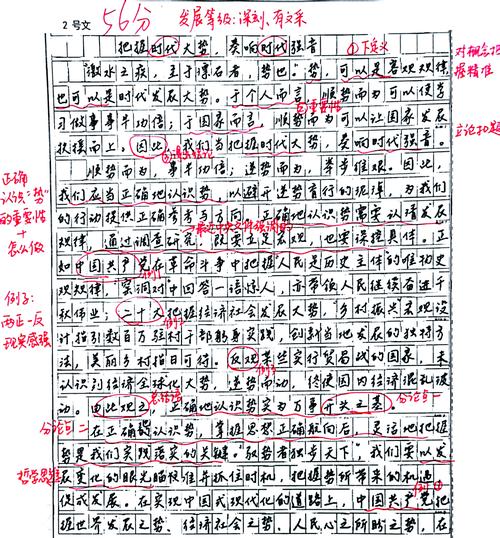 2号文
56分
发展等级:深刻、有文采
把握时代大势，奏响时代强音
①下定义
激水之疾，至于漂石者，势也。"势"，可以是客观规律，
对概念把握精准
也可以是时代发展大势。于个人而言，顺势而为可以使学
②重要性
习做事事半功倍；于国家而言，顺势而为可以让国家发展
扶摇而上。因此，我们当把握时代大势，奏响时代强音。
立论扣题
顺势而为，事半功倍；逆势而为，举步维艰。因此，
正确认识"势"的重要性+怎么做
我们应当正确地认识势，以避开逆势前行的泥淖，为我们
的行动提供正确参考与方向。正确地认识势需要认清发展
规律，通过调查研究，既要立足宏观，也要深挖具体。正
如中国共产党在革命斗争中把握人民是历史主体的唯物史
例1
观规律，实润对中回答一语惊人，亦带领人民继续奋进千
例子:两正一反 现实感强
秋伟业；二十大把握经济社会发展大势，乡村振兴宏观设
例2
计指引数百万驻村干部躬身实践，创新当地发展的独特方
法，美丽乡村指日可待。反观某些实行贸易战的国家，未
例3
认识到经济全球化大势，逆势而动，终使国内经济混乱被
动。由此观之，正确地认识势实为万事开头之基。
总结语
分论点一
分论点二
在正确认识势，掌握思想正确航向后，灵活地把握
势是我们实践落实的关键。"驭势者独步天下"，我们要以发
哲学思维
展变化的眼光瞄准并抓住时机，把握势所带来的机遇
促成发展。在实现中国式现代化的道路上，中国共产党把
例①
握世界发展之势、经济社会之势、人民心之所盼之势，在